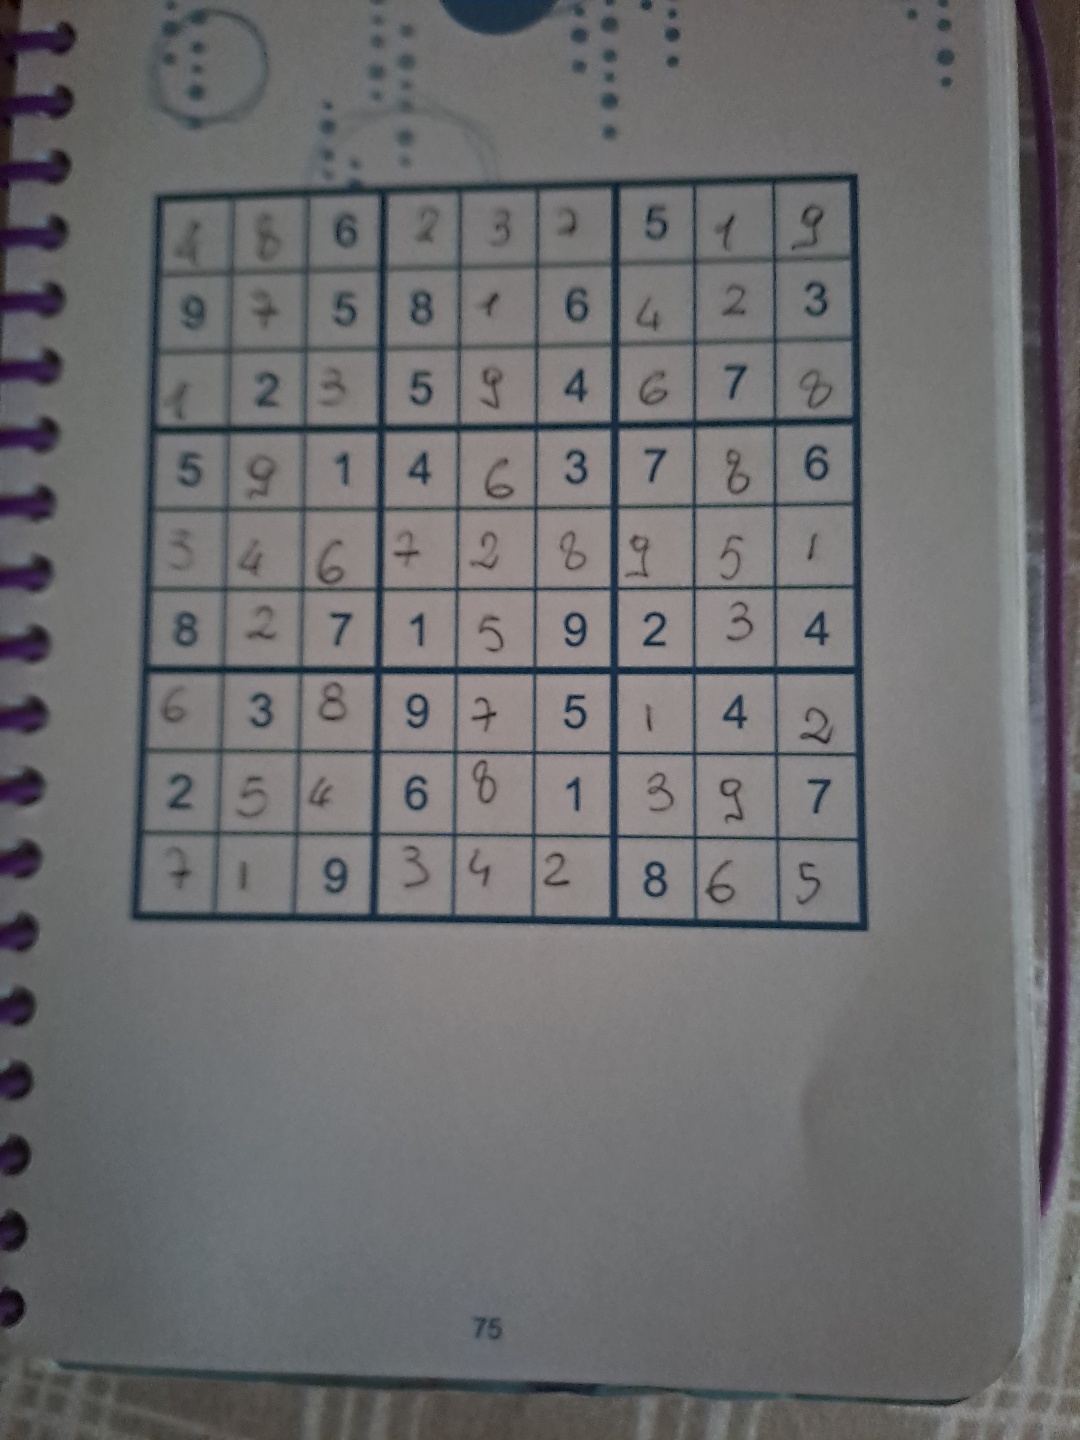 4 8 6 2 3 7 5 1 9
9 7 5 8 1 6 4 2 3
1 2 3 5 9 4 6 7 8
5 9 1 4 6 3 7 8 6
3 4 6 7 2 8 9 5 1
8 2 7 1 5 9 2 3 4
6 3 8 9 7 5 1 4 2
2 5 4 6 8 1 3 9 7
7 1 9 3 4 2 8 6 5
75